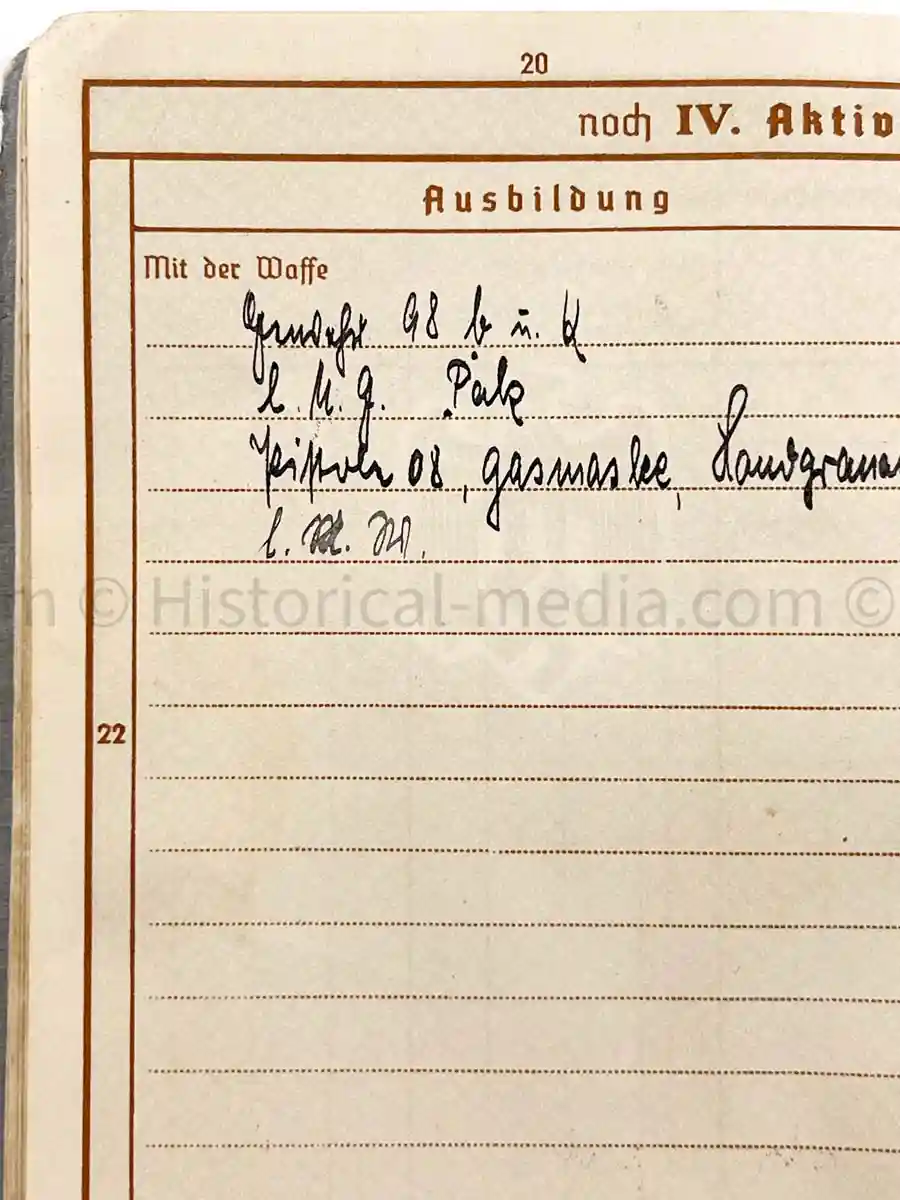 20
noch IV. Aktiv
Ausbildung
Mit der Waffe
Gewehr 98 b u. K
l. M. G. Pak
Pistole 08, Gasmaske, Handgrana
l. M. W.
m © Historical-media.com ©
22